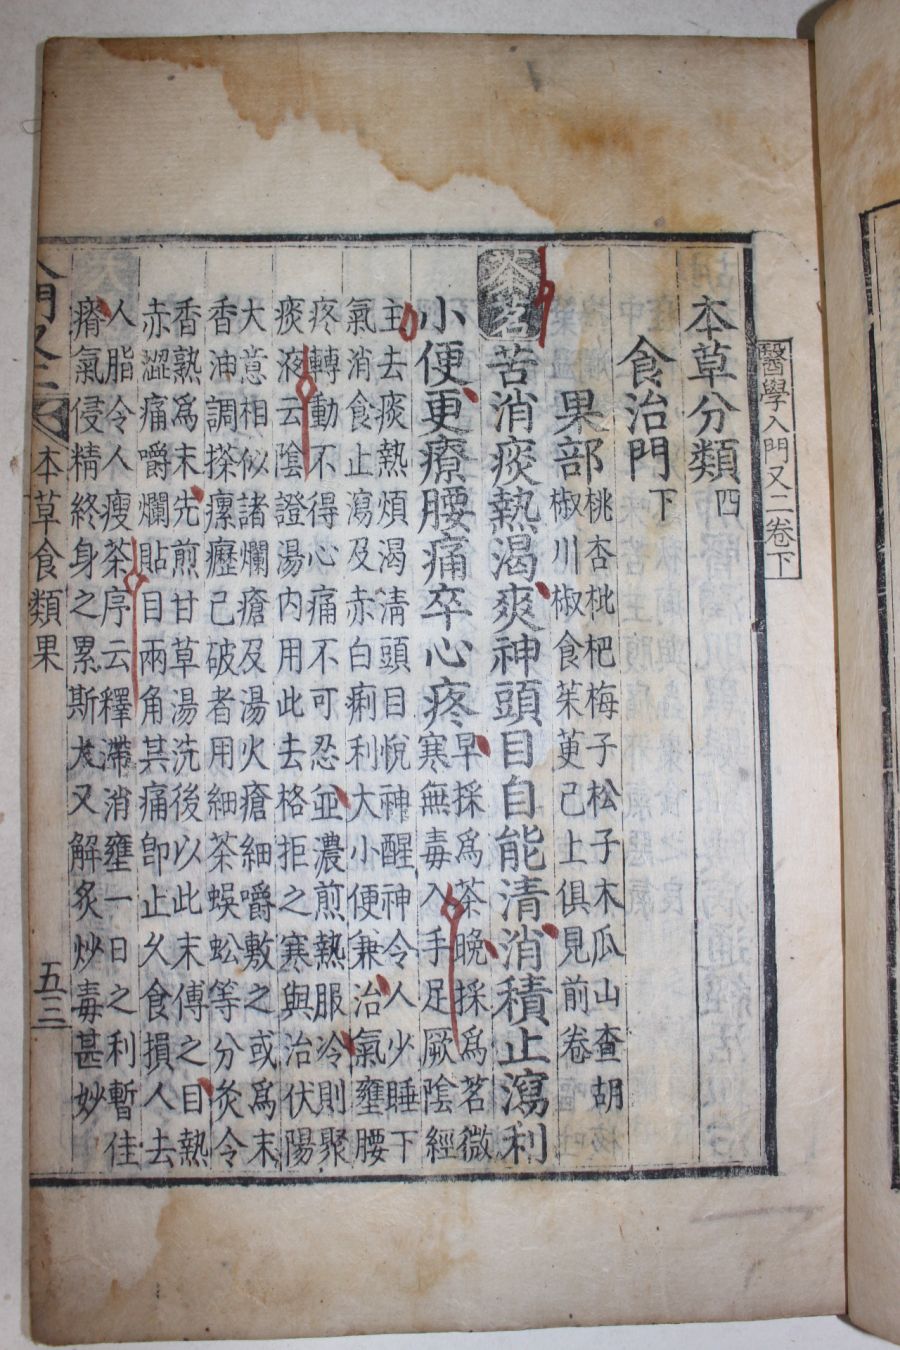 醫學入門又二卷下
本草分類四
食治門下
果部桃杏枇杷梅子松子木瓜山查胡
椒川椒食茱萸已上俱見前卷
茶茗苦消痰熱渴爽神頭目自能清消積止瀉利
小便更療腰痛卒心疼早採爲茶晚採爲茗微
寒無毒入手足厥陰經
主去痰熱煩渴淸頭目悅神醒神令人少睡下
氣消食止瀉及赤白痢利大小便兼治氣壅腰
疼轉動不得心痛不可忍並濃煎熱服冷則聚
痰液云陰證湯内用此去格拒之寒與治伏陽
大意相似諸爛瘡及湯火瘡細嚼敷之或爲末
香油調搽瘰癧已破者用細茶蜈蚣等分炙令
香熟爲末先煎甘草湯洗後以此末傅之目熱
赤澀痛嚼爛貼目兩角其痛卽止久食損人去
人脂令人瘦茶序云釋滯消壅一日之利暫佳
瘠氣侵精終身之累斯大又解炙炒毒甚妙
本草食類果
五三